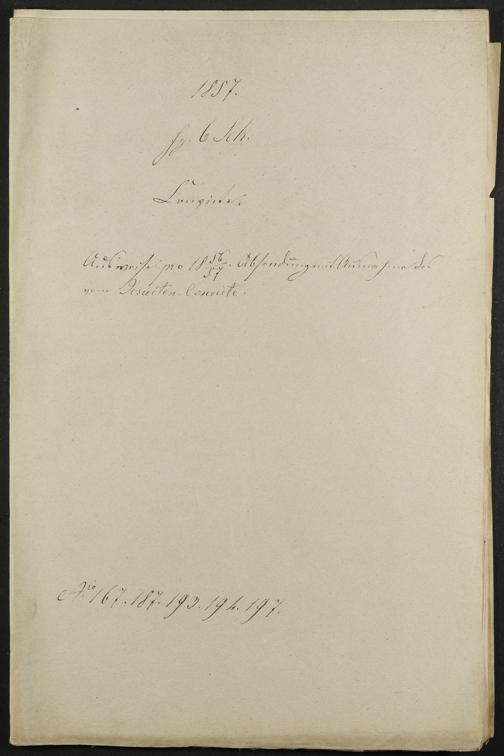 1857.
fz. 6 Sch.
Convicte.
Ausweise pro 18 56/57. Absendung mit Ausnahme des
vom Jesuiten-Convicte.
Nro 167. 187. 193. 194. 197.